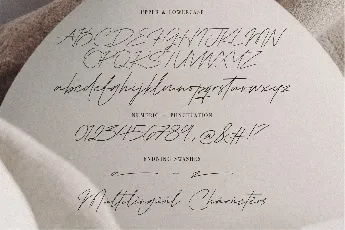 UPPER & LOWERCASE
ABCDEFGHIJKLMN
OPQRSTUVWXYZ
abcdefghijklmnopqrstuvwxyz
NUMERIC - PUNCTUATION
0123456789.,@&#!?
ENDNING SWASHES
Multilingual Characters